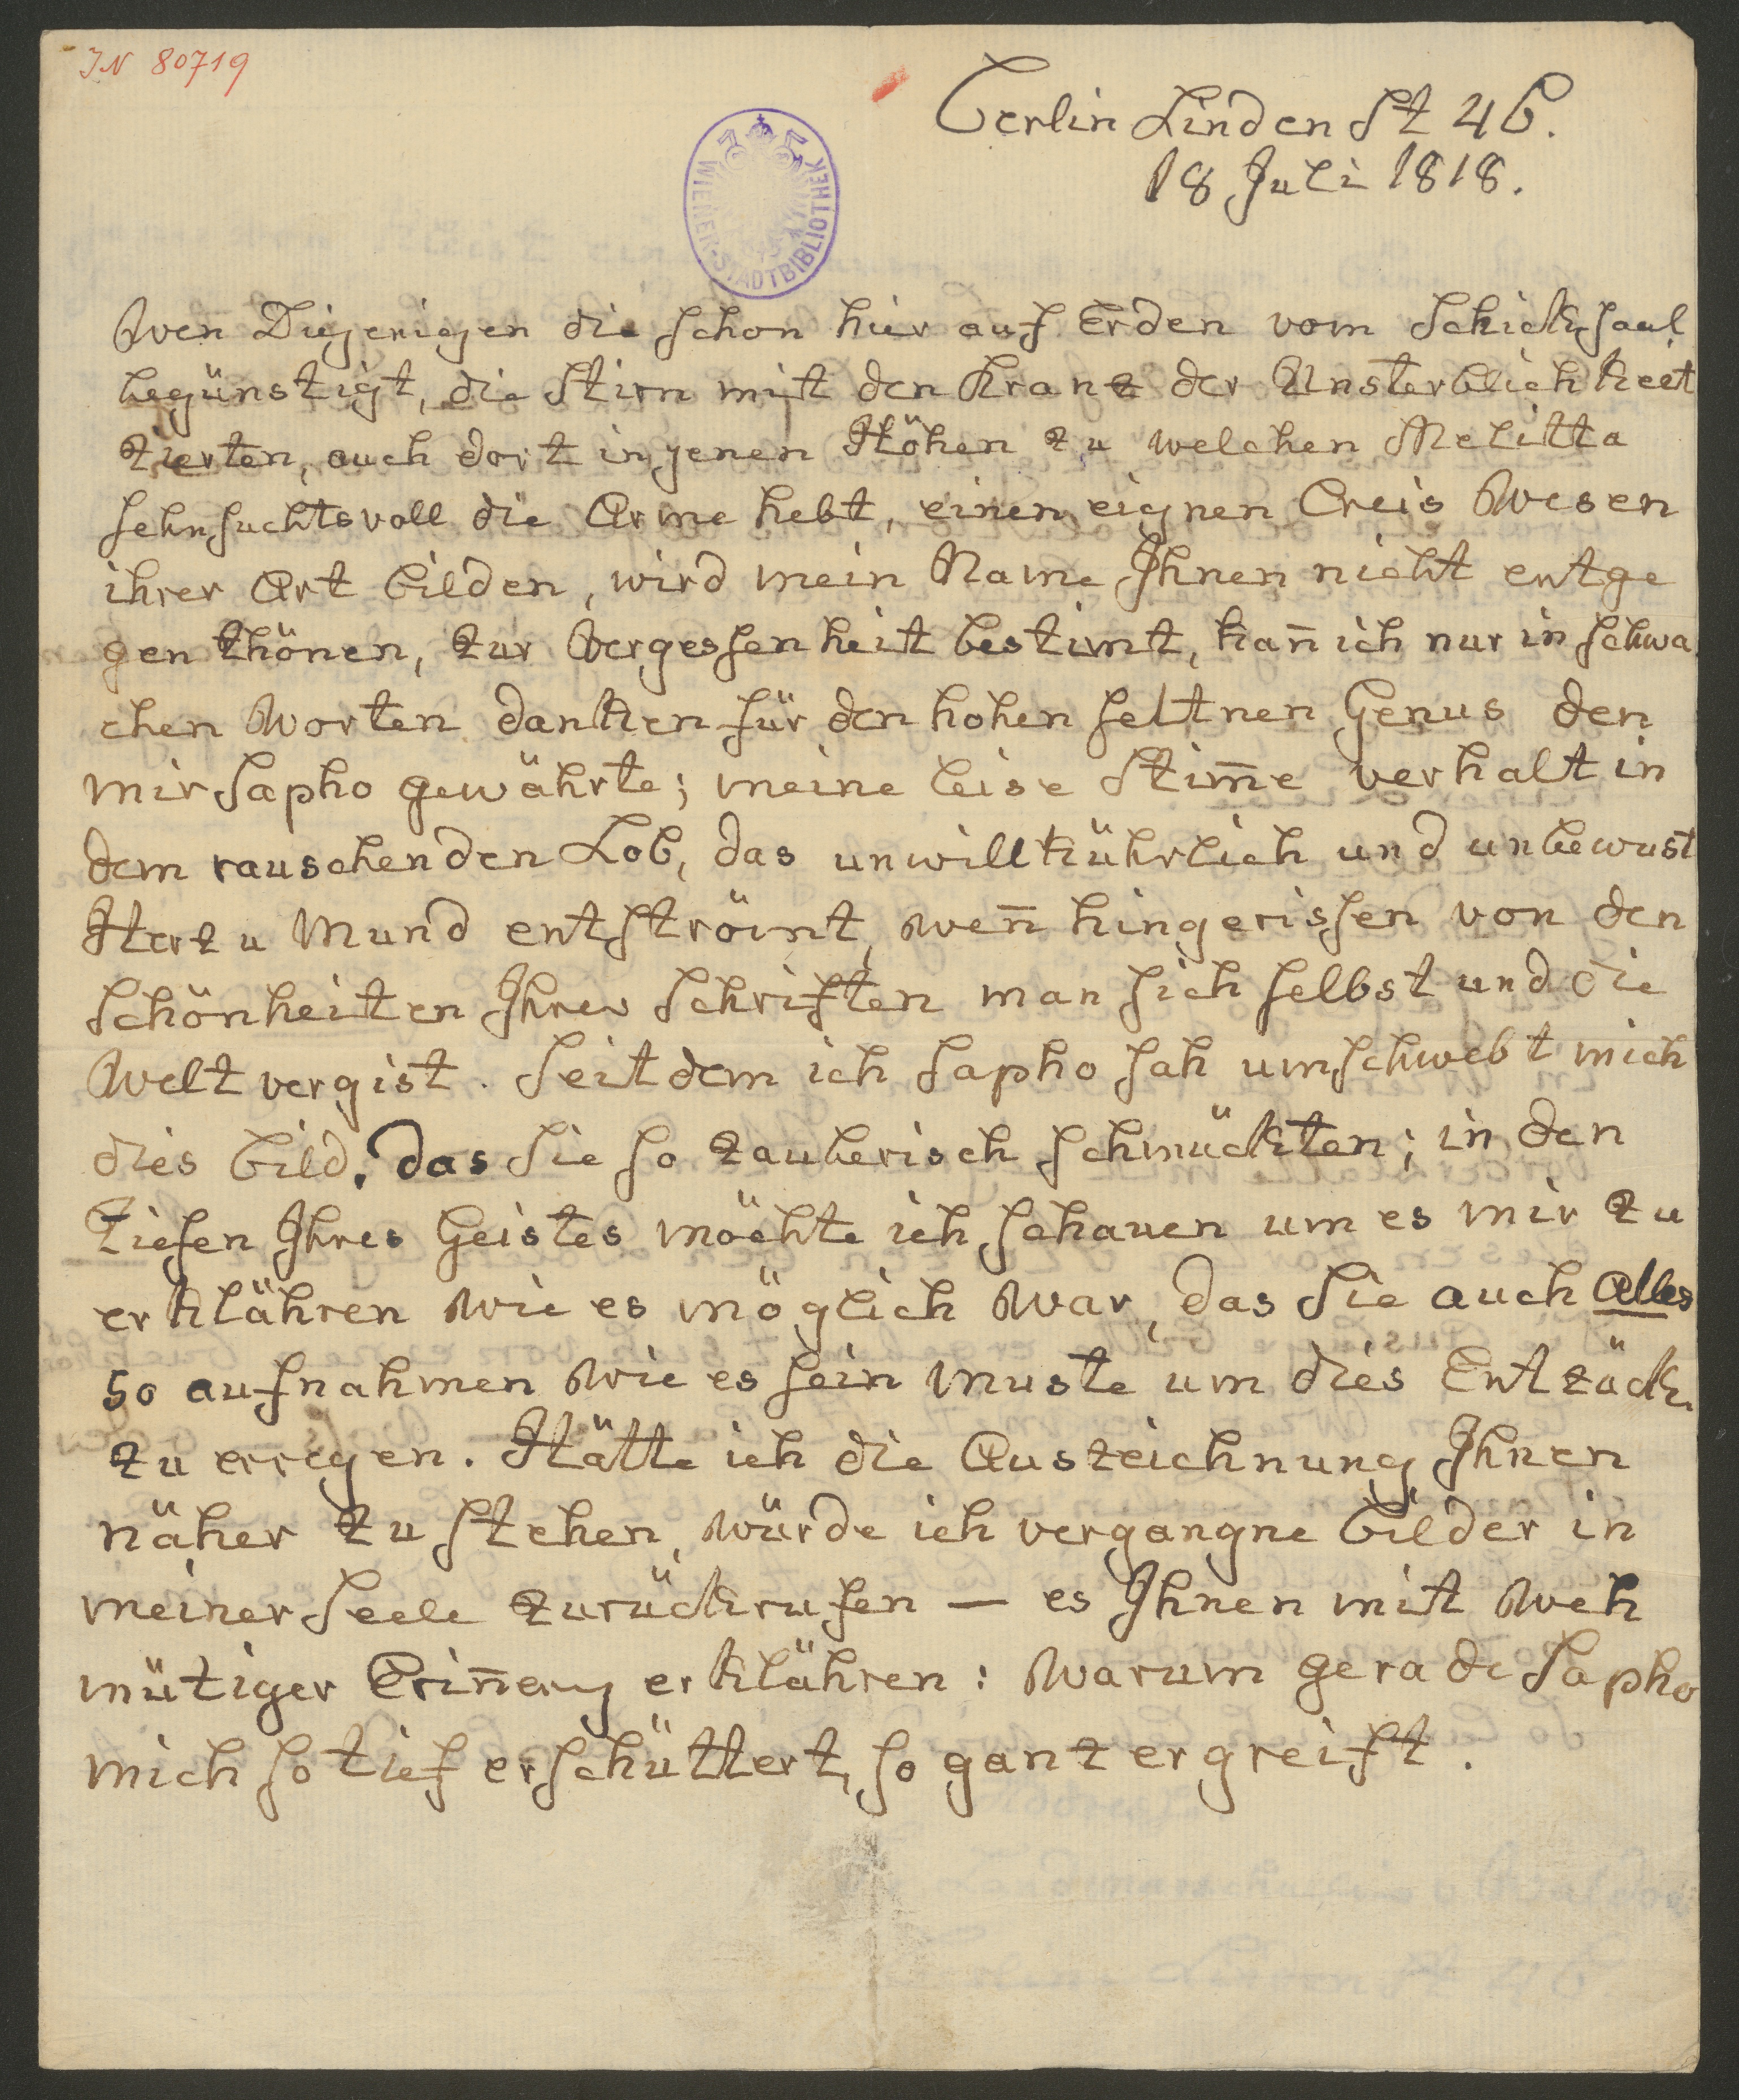 JN 80719
Berlin Linden St 46.
18 Juli 1818.
WIENER STADTBIBLIOTHEK
Wen Diejenigen die schon hier auf Erden vom Schicksaal
begünstigt, die Stirn mit den Kranz der Unsterblichkeit
zierten, auch dort in jenen Höhen zu welchen Melitta
sehnsuchtsvoll die Arme hebt, einen eignen Creis Wesen
ihrer Art bilden, wird mein Name Ihnen nicht entge
gen thönen, zur Vergessenheit bestimt, kan̄ ich nur in schwa
chen Worten danken für den hohen seltnen Genus den
mir Sapho gewährte; meine leise Stim̄e verhalt in
dem rauschenden Lob, das unwillkührlich und unbewust
Herz u Mund entströmt, wen̄ hingerissen von den
Schönheiten Ihrer Schriften man sich selbst und die
Welt vergist. Seitdem ich Sapho sah umschwebt mich
dies Bild, das Sie so zauberisch schmückten; in den
Tiefen Ihres Geistes möchte ich schauen um es mir zu
erklähren wie es möglich war, das Sie auch Alles
so aufnahmen wie es sein muste um dies Entzück.
zu erregen. Hätte ich die Auszeichnung Ihnen
näher zu stehen, würde ich vergangne Bilder in
meiner Seele zurückrufen — es Ihnen mit Weh
mütiger Erin̄erg erklähren: warum gerade Sapho
mich so tief erschüttert, so ganz ergreift.